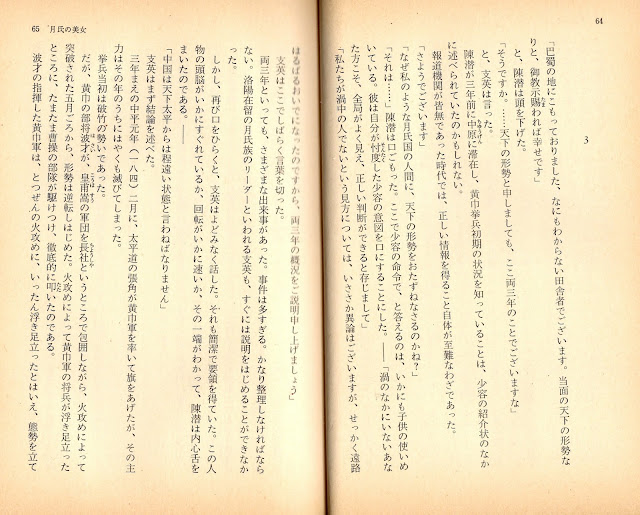 64
3
「巴蜀の地にこもっておりました、なにもわからない田舎者でございます。当面の天下の形勢な
りと、御教示賜われば幸せです」
と、陳潜は頭を下げた。
「そうですか。……天下の形勢と申しましても、ここ両三年のことでございますな」
と、支英は言った。
陳潜が三年前に中原に滞在し、黄巾挙兵初期の状況を知っていることは、少容の紹介状のなか
に述べられていたのかもしれない。
報道機関が皆無であった時代では、正しい情報を得ること自体が至難なわざであった。
「さようでございます」
「なぜ私のような月氏国の人間に、天下の形勢をおたずねなさるのかね?」
「それは……」陳潜は口ごもった。ここで少容の命令で、と答えるのは、いかにも子供の使いめ
いている。彼は自分が忖度した少容の意図を口にすることにした。――「渦のなかにいないあな
た方こそ、全局がよく見え、正しい判断ができると存じまして」
「私たちが渦中の人でないという見方については、いささか異論はございますが、せっかく遠路
65 月氏の美女
はるばるおいでになったのですから、両三年の概況をご説明申し上げましょう」
支英はここでしばらく言葉を切った。
両三年といっても、さまざまな出来事があった。事件は多すぎる。かなり整理しなければなら
ない。洛陽在留の月氏族のリーダーといわれる支英も、すぐには説明をはじめることができなか
った。
しかし、再び口をひらくと、支英はよどみなく話した。それも簡潔で要領を得ていた。この人
物の頭脳がいかにすぐれているか、回転がいかに速いか、その一端がわかって、陳潜は内心舌を
まいたのである。――
「中国は天下太平からは程遠い状態と言わねばなりません」
支英はまず結論を述べた。
三年まえの中平元年(一八四)二月に、太平道の張角が黄巾軍を率いて旗をあげたが、その主
力はその年のうちにはやくも滅びてしまった。
挙兵当初は破竹の勢いであった。
だが、黄巾の部将波才が、皇甫嵩の軍団を長社というところで包囲しながら、火攻めによって
突破された五月ごろから、形勢は逆転しはじめた。火攻めによって黄巾軍の将兵が浮き足立った
ところに、たまたま曹操の部隊が駆けつけ、徹底的に叩いたのである。
波才の指揮した黄巾軍は、とつぜんの火攻めに、いったん浮き足立ったとはいえ、態勢を立て